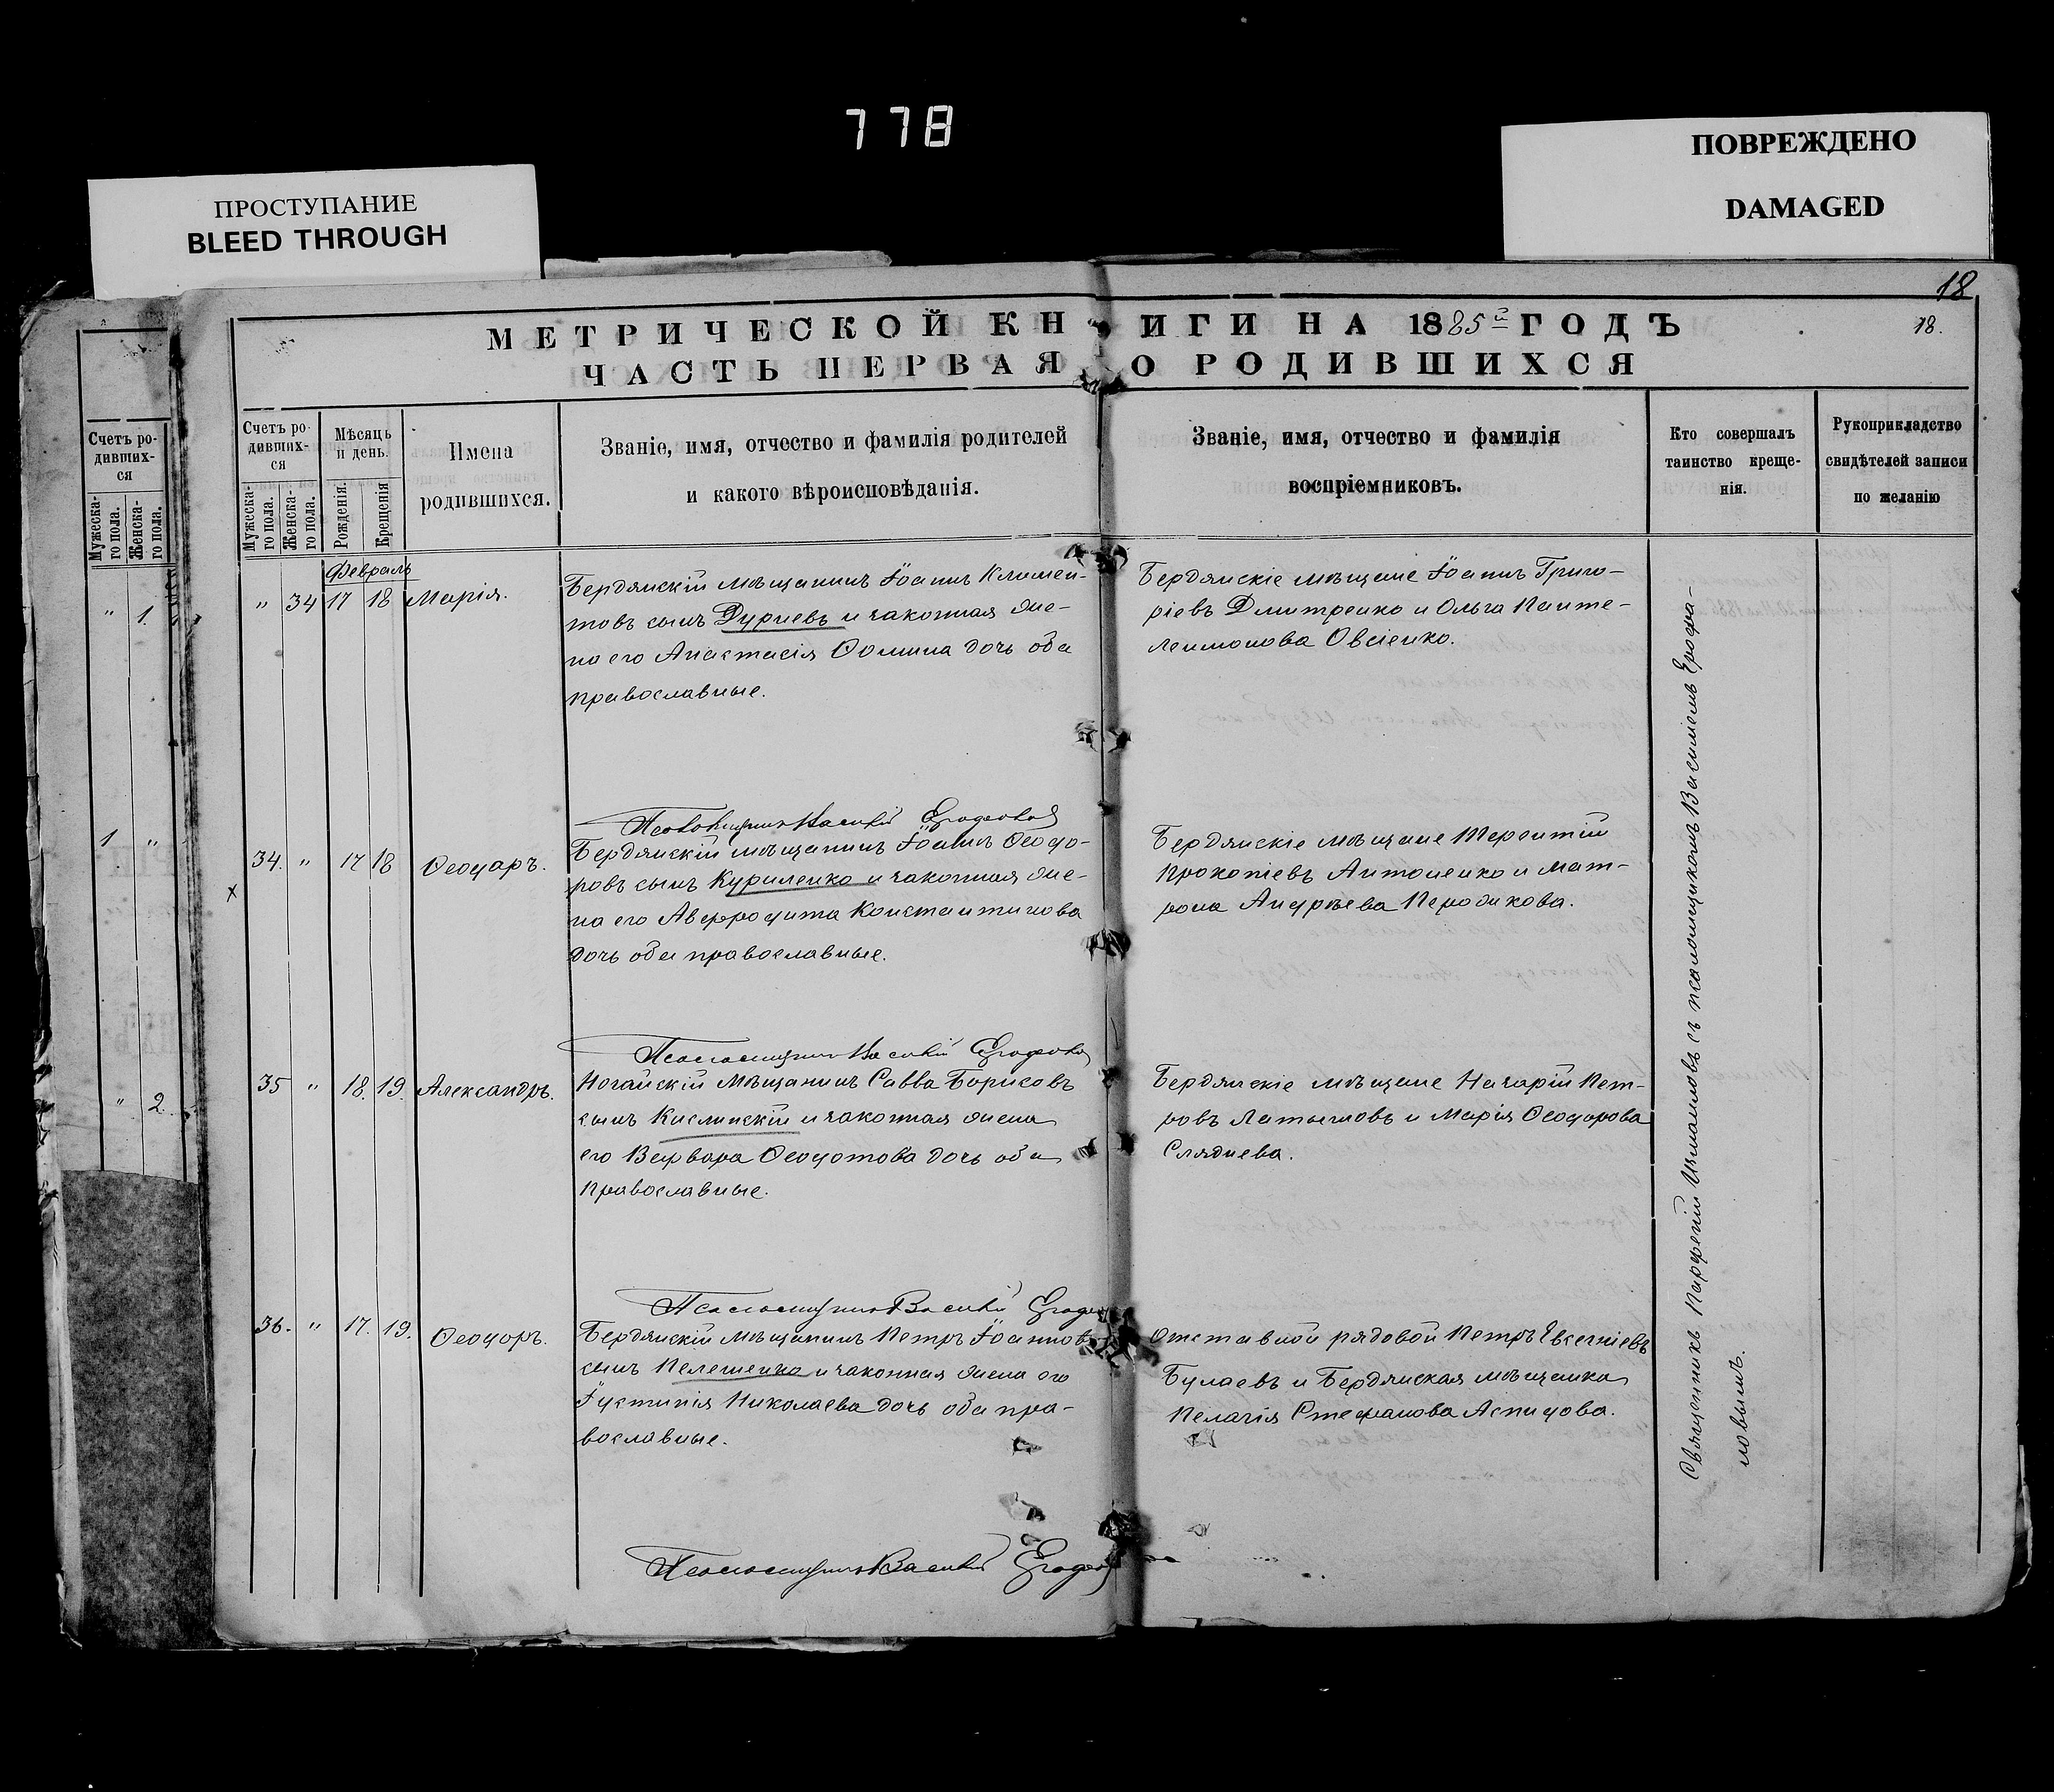 778
ПРОСТУПАНИЕ
BLEED THROUGH
ПОВРЕЖДЕНО
DAMAGED
18
18.
МЕТРИЧЕСКОЙ КНИГИ НА 1885й ГОДЪ
ЧАСТЬ ПЕРВАЯ О РОДИВШИХСЯ
Счетъ ро-
дивших-
ся
Мужеска-
го пола.
Женска-
го пола.
" 1.
1 "
" 2
Счетъ ро-
дивших-
ся
Мужеска-
го пола.
Женска-
го пола.
Мѣсяцъ
и день.
Рожденія.
Крещенія
Имена
родившихся.
Званіе, имя, отчество и фамилія родителей
и какого вѣроисповѣданія.
Званіе, имя, отчество и фамилія
воспріемниковъ.
Кто совершалъ
таинство креще-
нія.
Рукоприкладство
свидѣтелей записи
по желанію
Февраль
" 34 17 18 Марія.
Бердянскій мѣщанинъ Іоаннъ Климен-
товъ сынъ Дурневъ и законная же-
на его Анастасія Ѳомина дочь оба
православные.
Бердянскіе мѣщане Іоаннъ Григо-
ріевъ Дмитренко и Ольга Панте-
леимонова Овсіенко.
Псаломщикъ Василій Ерофановъ
34. " 17 18 Ѳеодоръ.
Бердянскій мѣщанинъ Іоаннъ Ѳеодо-
ровъ сынъ Куриленко и законная же-
на его Афродита Константинова
дочь оба православные.
Бердянскіе мѣщане Терентій
Прокопіевъ Антоненко и Мат-
рона Андрѣева
Псаломщикъ Василій
35 " 18. 19. Александръ.
Ногайскій мѣщанинъ Савва Борисовъ
сынъ Кислинскій и законная жена
его Варвара Ѳеодотова дочь оба
православные.
Бердянскіе мѣщане Назарій Пет-
ровъ Латышовъ и Марія Ѳеодорова
Сляднева.
Псаломщикъ Василій
36. " 17. 19. Ѳеодоръ.
Бердянскій мѣщанинъ Петръ Іоанновъ
сынъ Пелешенко и законная жена его
Іустинія Николаева дочь оба пра-
вославные.
Отставной рядовой Петръ Евгеніевъ
Булаевъ и Бердянская мѣщанка
Пелагія Стефанова Аспидова.
Псаломщикъ Василій
Священникъ Парфеній съ псаломщикомъ Василіемъ Ерофа-
новымъ.